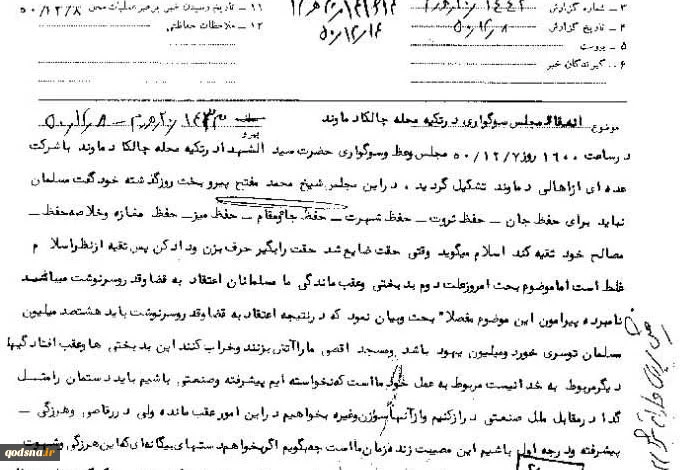 ۳ ـ شماره گزارش
۱۱ ـ تاریخ رسیدن خبر برهبر عملیات محل ۵۰/۱۲/۸
۴ ـ تاریخ گزارش ۵۰/۱۲/۸
۵۰/۱۲/۱۶
۱۲ ـ ملاحظات حفاظتی
۵ ـ پیوست
۶ ـ گیرندگان خبر
موضوع انعقاد مجلس سوگواری در تکیه محله چالکا دماوند
پیرو
در ساعت ۱۶۰۰ روز ۵۰/۱۲/۷ مجلس وعظ وسوگواری حضرت سید الشهدا در تکیه محله چالکا دماوند با شرکت
عده ای از اهالی دماوند تشکیل گردید ، در این مجلس شیخ محمد مفتح پیرو بحث روز گذشته خود گفت مسلمان
نباید برای حفظ جان ـ حفظ ثروت ـ حفظ شهرت ـ حفظ جاه و مقام ـ حفظ میز ـ حفظ مغازه وخلاصه حفظ ـ
مصالح خود تقیه کند اسلام میگوید وقتی حقت ضایع شد حقت رابگیر حرف بزن ودادکن پس تقیه ازنظر اسلام
غلط است اما موضوع بحث امروز علت دوم بدبختی وعقب ماندگی ما مسلمانان اعتقاد به قضا وقدر وسرنوشت میباشد
نامبرده پیرامون این موضوع مفصلا" بحث وبیان نمود که درنتیجه اعتقاد به قضا وقدر وسرنوشت باید هشتصد میلیون
مسلمان توسری خورد ومیلیون یهود باشد ومسجد اقصی ما را آتش بزنند وخراب کنند این بدبختی ها وعقب افتادگیها
دیگر مربوط به خدا نیست مربوط به عمل خود ما است که نخواسته ایم پیشرفته وصنعتی باشیم باید دستمان را مثل
گدا در مقابل ملل صنعتی دراز کنیم واز آنها سوزن وغیره بخواهیم در این امور عقب مانده ولی در رقاصی وهرزگی ـ
پیشرفته ودرجه اول باشیم این مصیبت زنده زمان ما است چه بگویم اگر بخواهم دستهای بیگانه ای که این هرزگی وشهوت
qodsna.ir